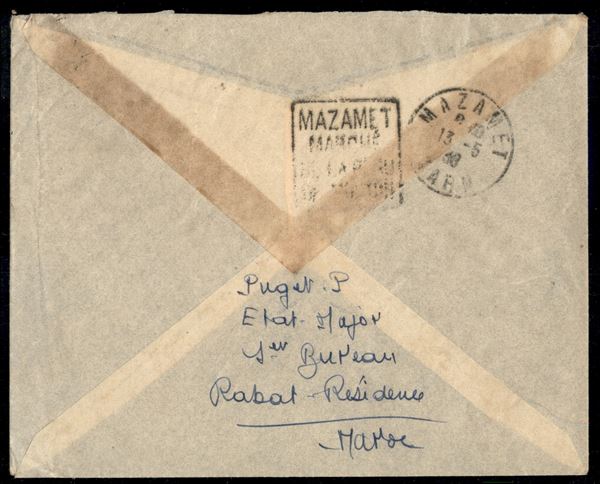 MAZAMET
MARCHÉ
DE LA
MAZAMET
13 -5
TARN
Puget. P
Etat-Major
1er Bureau
Rabat-Résidence
Maroc